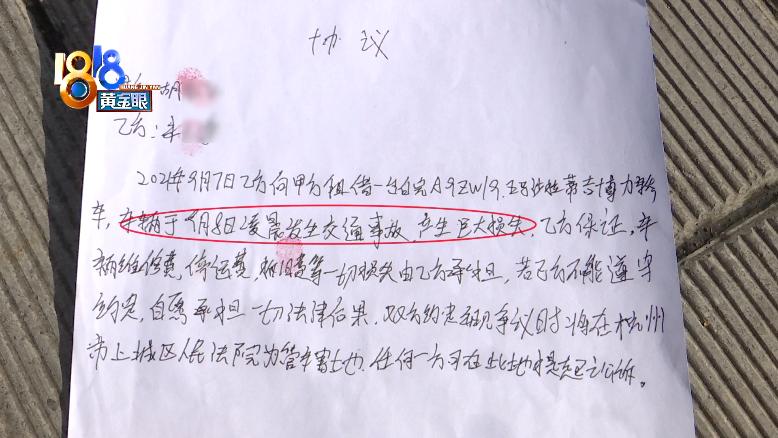 1818
HUANGJINYAN
黄金眼
协议
胡
乙方：
2021年9月7日乙方向甲方租借一台
车，车辆于9月8日凌晨发生交通事故，产生巨大损失，乙方保证，车
辆维修费，停运费，折旧费等一切损失由乙方承担，若乙方不能遵守
约定，自愿承担一切法律后果，双方约定若有争议时将在杭州
市上城区人民法院为管辖地，任何一方可在此地提起诉讼。